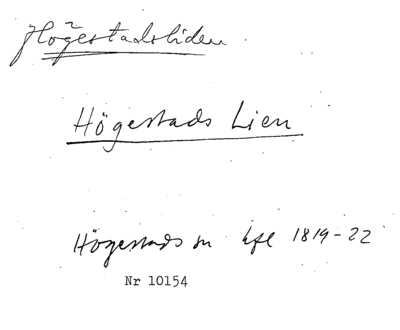 Högestadsliden
Högestads Lien
Högestads sn hfl 1819-22
Nr 10154